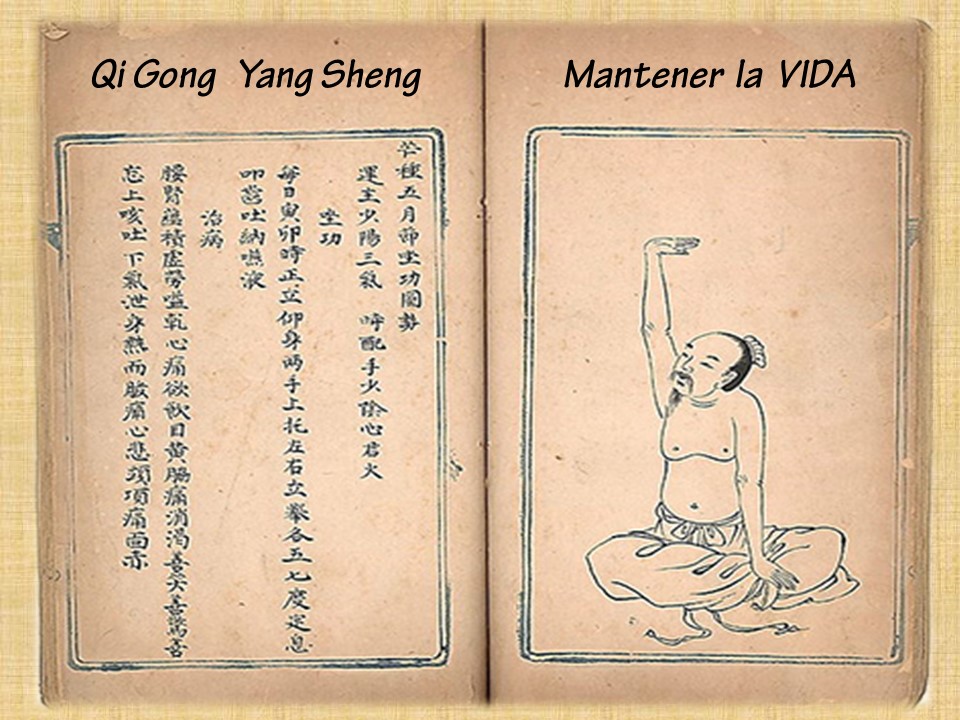 Qi Gong Yang Sheng
Mantener la VIDA
芒種五月節坐功圖勢
運主少陽三氣 時配手少陰心君火
坐功
每日寅卯時正立仰身兩手上托左右立舉各五七度定息
叩齒吐納嚥液
治病
腰腎蘊積虛勞嗌乾心痛欲飲目黃脇痛消渴善笑善驚善
忘上咳吐下氣泄身熱而股痛心悲頭項痛面赤